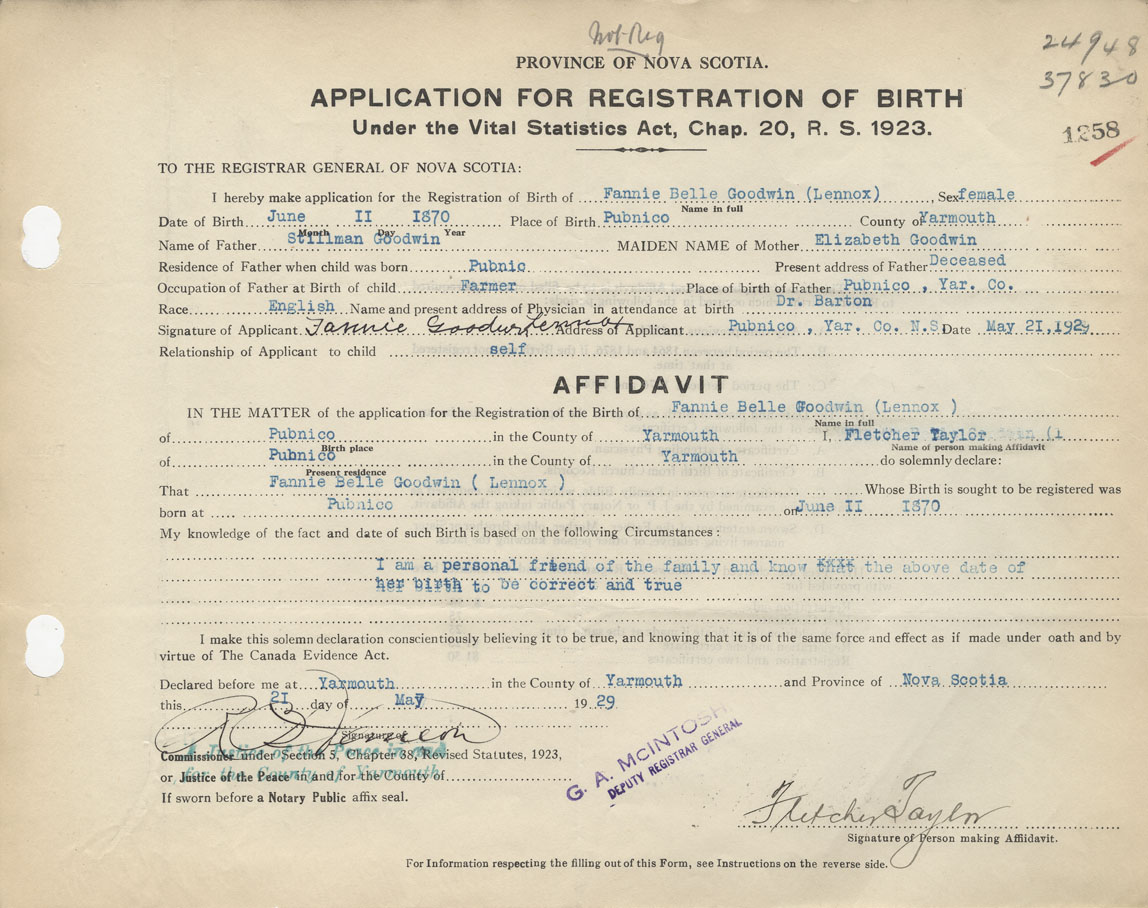 Not Reg
24948
37830
PROVINCE OF NOVA SCOTIA.
APPLICATION FOR REGISTRATION OF BIRTH
Under the Vital Statistics Act, Chap. 20, R. S. 1923.
1258
TO THE REGISTRAR GENERAL OF NOVA SCOTIA:
I hereby make application for the Registration of Birth of Fannie Belle Goodwin (Lennox) , Sex female
Name in full
Date of Birth June II 1870 Place of Birth Pubnico County of Yarmouth
Month Day Year
Name of Father Stillman Goodwin MAIDEN NAME of Mother Elizabeth Goodwin
Residence of Father when child was born Pubnic Present address of Father Deceased
Occupation of Father at Birth of child Farmer Place of birth of Father Pubnico , Yar. Co.
Race English Name and present address of Physician in attendance at birth Dr. Barton
Signature of Applicant Fannie Goodwin Lennox Address of Applicant Pubnico , Yar. Co. N.S. Date May 2I,1929
Relationship of Applicant to child self
AFFIDAVIT
IN THE MATTER of the application for the Registration of the Birth of Fannie Belle Goodwin (Lennox )
Name in full
of Pubnico in the County of Yarmouth I, Fletcher Taylor
Birth place Name of person making Affidavit
of Pubnico in the County of Yarmouth do solemnly declare:
Present residence
That Fannie Belle Goodwin ( Lennox ) Whose Birth is sought to be registered was
born at Pubnico on June II I870
My knowledge of the fact and date of such Birth is based on the following Circumstances :
I am a personal friend of the family and know the above date of
her birth to be correct and true
I make this solemn declaration conscientiously believing it to be true, and knowing that it is of the same force and effect as if made under oath and by
virtue of The Canada Evidence Act.
Declared before me at Yarmouth in the County of Yarmouth and Province of Nova Scotia
this 2I day of May 19 29
Signature of
A Justice of the Peace in and
Commissioner under Section 5, Chapter 38, Revised Statutes, 1923,
for the County of Yarmouth
or Justice of the Peace in and for the County of
If sworn before a Notary Public affix seal.
G. A. MCINTOSH
DEPUTY REGISTRAR GENERAL
Fletcher Taylor
Signature of Person making Affiidavit.
For Information respecting the filling out of this Form, see Instructions on the reverse side.